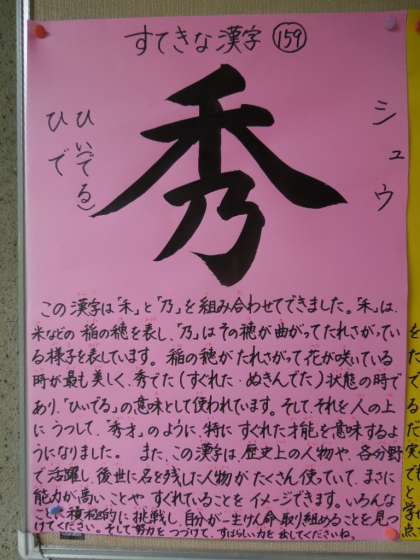 すてきな漢字 159
秀
シュウ
ひいでる)
ひで
この漢字は「禾」と「乃」を組み合わせてできました。「禾」は、
米などの稲の穂を表し、「乃」はその穂が曲がってたれさがってい
る様子を表しています。稲の穂がたれさがって花が咲いている
時が最も美しく、秀でた(すぐれた・ぬきんでた)状態の時で
あり、「ひいでる」の意味として使われています。そして、それを人の上
にうつして、「秀才」のように、特にすぐれた才能を意味するよ
うになりました。また、この漢字は歴史上の人物や、各分野
で活躍し、後世に名を残した人物がたくさん使っていて、まさに
能力が高いことや すぐれていることをイメージできます。いろんな
ことに積極的に挑戦し、自分が一生けん命取り組めることを見つ
けてください。そして努力をつづけて、すばらしい力を出してくださいね。